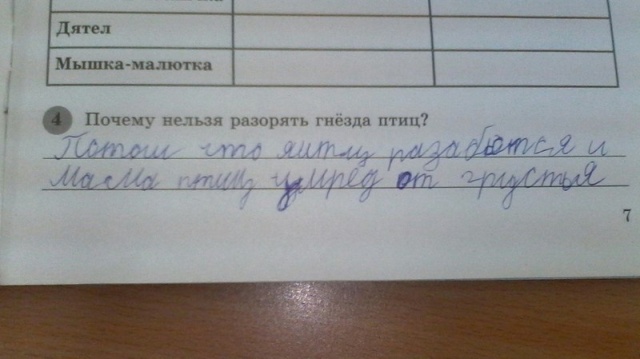 Дятел
Мышка-малютка
4 Почему нельзя разорять гнёзда птиц?
Потом что яитц разабьются и
масма птиц умрёд от грустья
7